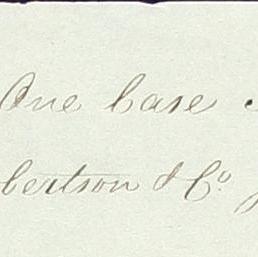 One Case
bertson & Co